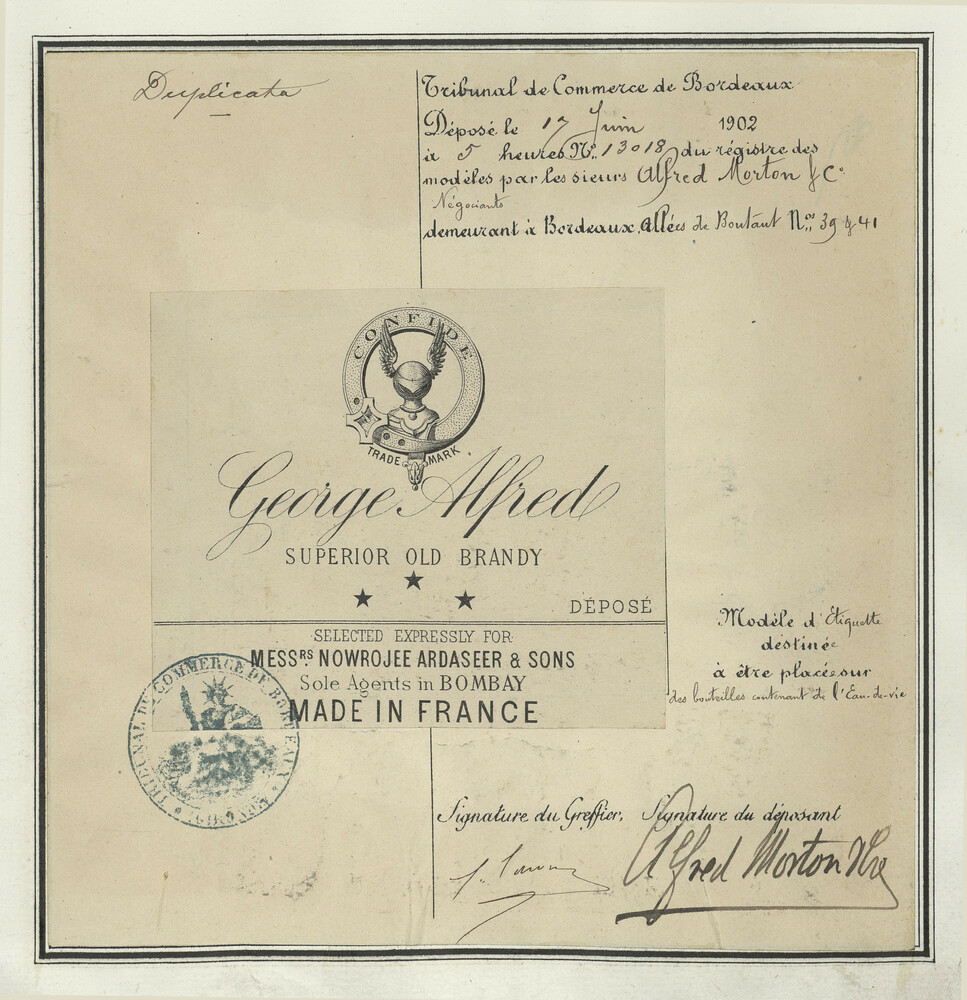 Duplicata
Tribunal de Commerce de Bordeaux
Déposé le 17 Juin 1902
à 5 heures No. 13018 du régistre des
modèles par les sieurs Alfred Morton & Co
Négociants
demeurant à Bordeaux, Allées de Boutaut Nos 39 & 41
CONFIDE
TRADE MARK
George Alfred
SUPERIOR OLD BRANDY
DÉPOSÉ
SELECTED EXPRESSLY FOR
MESSRS NOWROJEE ARDASEER & SONS
Sole Agents in BOMBAY
MADE IN FRANCE
Modèle d'Etiquette
destinée
à être placée sur
des bouteilles contenant de l'Eau-de-vie
TRIBUNAL DE COMMERCE DE BORDEAUX
Signature du Greffier, Signature du déposant
Alfred Morton